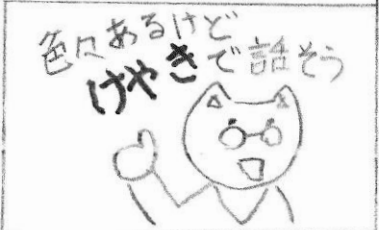 色々あるけど
けやきで話そう